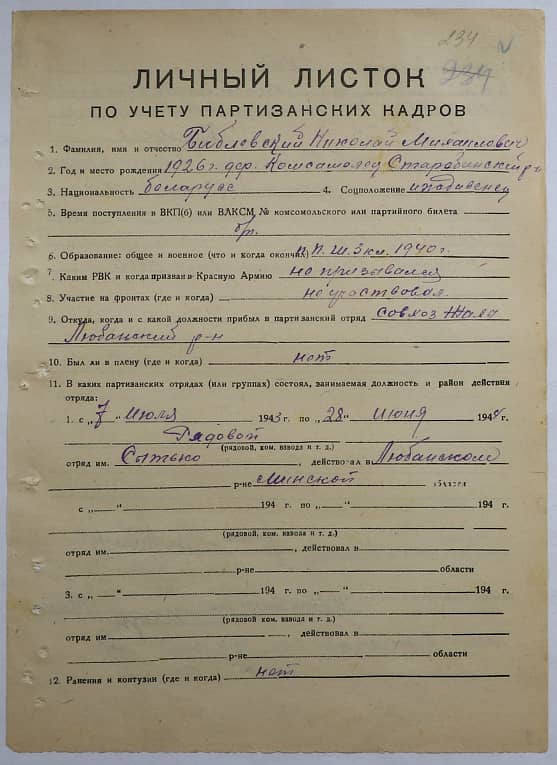 234
234
ЛИЧНЫЙ ЛИСТОК
ПО УЧЕТУ ПАРТИЗАНСКИХ КАДРОВ
1. Фамилия, имя и отчество Николай Михайлович
2. Год и место рождения 1926 г. дер. Комсомолец Старобинский р-н
3. Национальность беларус 4. Соцположение иждивенец
5. Время поступления в ВКП(б) или ВЛКСМ, № комсомольского или партийного билета
б/п.
6. Образование: общее и военное (что и когда окончил) Н.П.Ш. 3 кл. 1940 г.
7. Каким РВК и когда призван в Красную Армию не призывался
8. Участие на фронтах (где и когда) не участвовал
9. Откуда, когда и с какой должности прибыл в партизанский отряд совхоз Жалы
Любанский р-н
10. Был ли в плену (где и когда) нет
11. В каких партизанских отрядах (или группах) состоял, занимаемая должность и район действия
отряда:
1. с „7" июля 1943 г. по „28" июня 1944 г.
Рядовой
(рядовой, ком. взвода и т. д.)
отряд им. Сытько, действовал в Любанском
р-не Минской области
с „ " 194 г. по „ " 194 г.
(рядовой, ком. взвода и т. д.)
отряд им. , действовал в
р-не области
3. с „ " 194 г. по „ " 194 г.
(рядовой ком. взвода и т. д.)
отряд им , действовал в
р-не области
12. Ранения и контузии (где и когда) нет